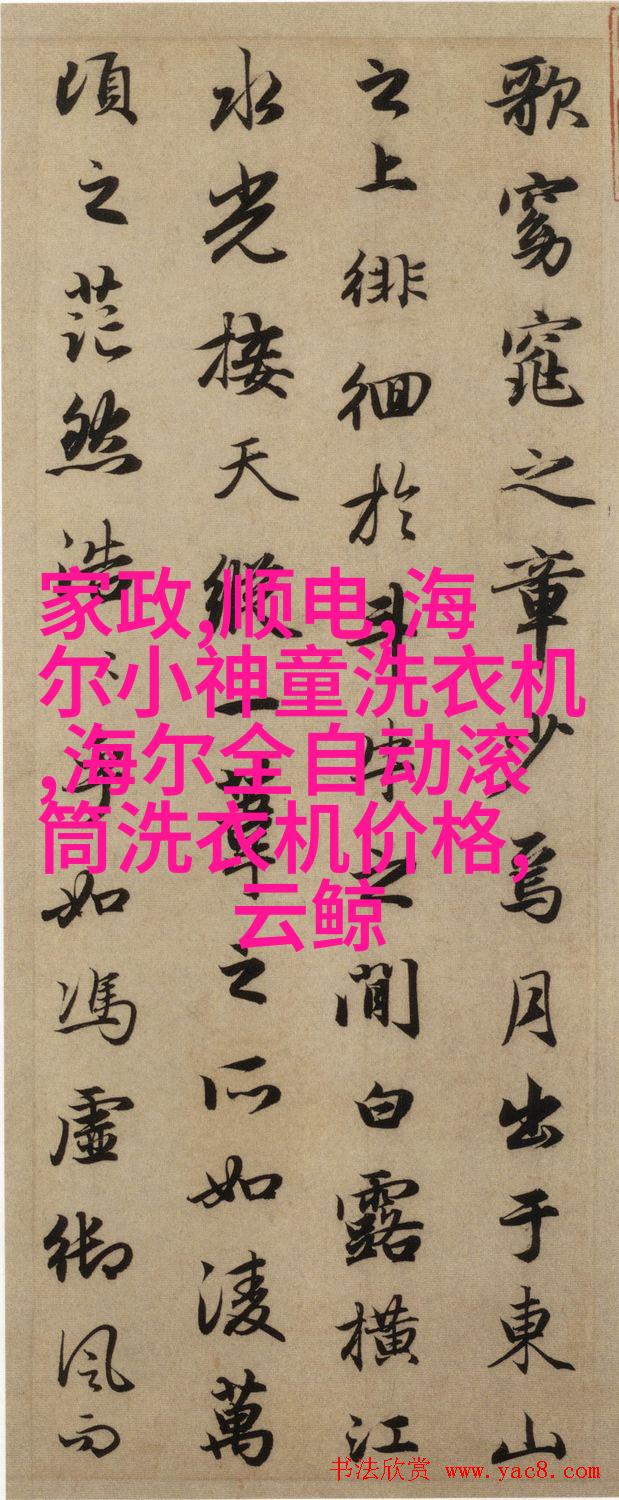 歌窈窕之章少焉月出于東山
之上徘徊於斗牛之間白露橫江
水光接天縱一葦之所如淩萬
頃之茫然浩〻乎如馮虛御風而
家政,顺电,海
尔小神童洗衣机
,海尔全自动滚
筒洗衣机价格,
云鲸
书法欣赏 www.yac8.com